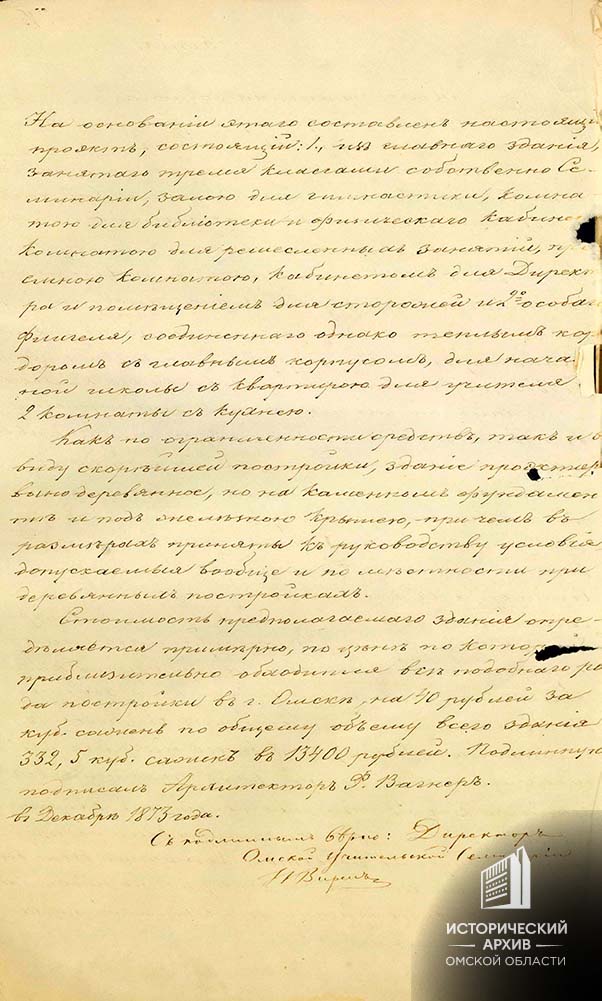 На основаніи этаго составленъ настоящі
проэктъ, состоящій: 1., изъ главнаго зданія,
занятаго тремя класами собственно Се-
минаріи, залою для гимнастики, комна-
тою для библіотеки и физическаго кабине
комнатою для ремесленныхъ занятій, прі
емною комнатою, кабинетомъ для Директ
ра и помѣщеніемъ для сторожей и 2го особа
флигеля, соединеннаго однако теплымъ ко
доромъ съ главнымъ корпусомъ, для нача
ной школы съ квартирою для учителя
2 комнаты съ кухнею.
Какъ по ограниченности средствъ, такъ и в
виду скорѣйшей постройки, зданіе проэктир
вано деревянное, но на каменномъ фундамен
тѣ и подъ желѣзною крышею, при чемъ въ
размѣрахъ приняты къ руководству условія
допускаемыя вообще и по мѣстности при
деревянныхъ постройкахъ.
Стоимость предполагаемаго зданія опре-
дѣляется примѣрно, по цѣнѣ по кото
приблизительно обходится всѣ подобнаго ро
да постройки въ г. Омскѣ, на 40 рублей за
куб. сажень по общему объему всего зданія
332,5 куб. сажень въ 13400 рублей. Подлинную
подписалъ Архитекторъ Ф. Вагнеръ.
въ Декабрѣ 1873 года.
Съ подлиннымъ вѣрно: Директоръ
Омской Учительской Семинаріи
ИСТОРИЧЕСКИЙ
АРХИВ
ОМСКОЙ ОБЛАСТИ